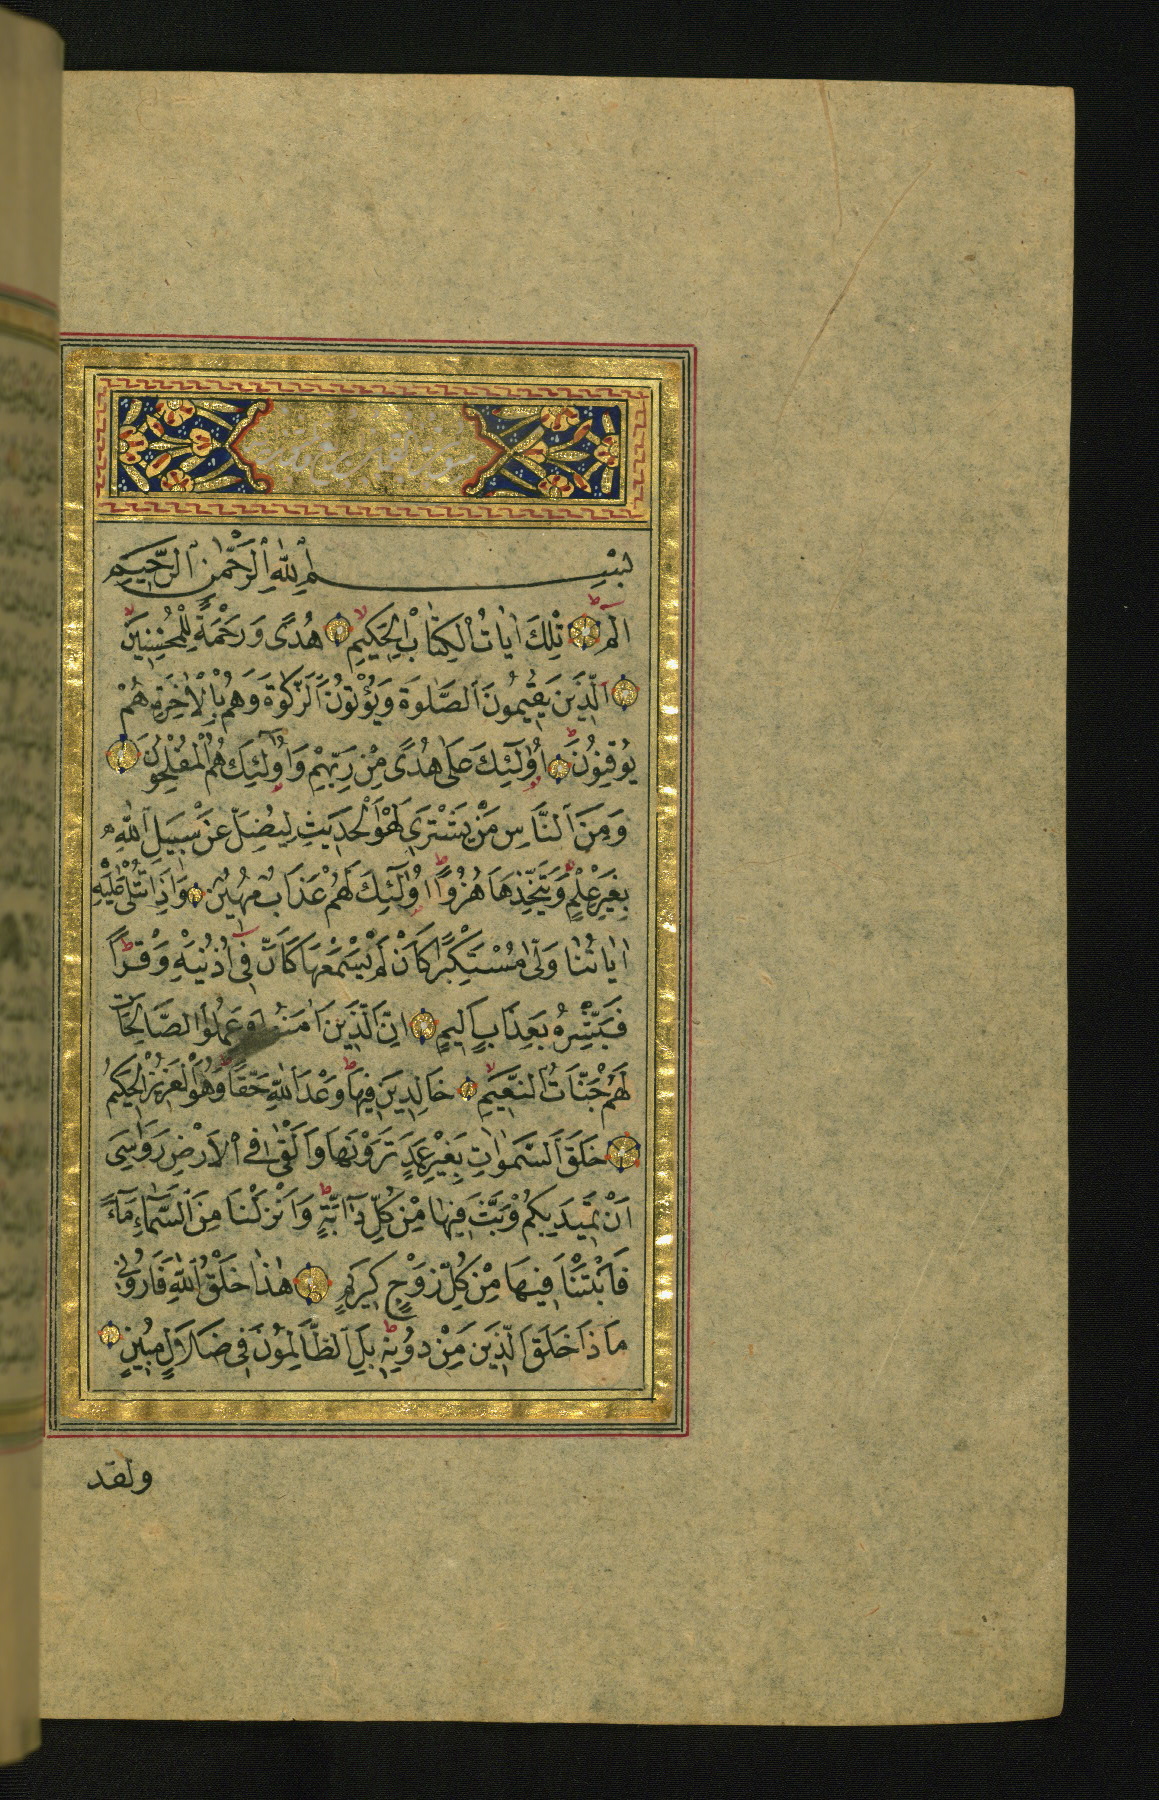 سورة لقمان
بِسْمِ اللّٰهِ الرَّحْمٰنِ الرَّحِيمِ
الٓمٓ تِلْكَ اٰيَاتُ الْكِتَابِ الْحَكِيمِ هُدًى وَرَحْمَةً لِلْمُحْسِنِينَ
اَلَّذِينَ يُقِيمُونَ الصَّلٰوةَ وَيُؤْتُونَ الزَّكٰوةَ وَهُمْ بِالْاٰخِرَةِ هُمْ
يُوقِنُونَ اُولٰٓئِكَ عَلٰى هُدًى مِنْ رَبِّهِمْ وَاُولٰٓئِكَ هُمُ الْمُفْلِحُونَ
وَمِنَ النَّاسِ مَنْ يَشْتَرِي لَهْوَ الْحَدِيثِ لِيُضِلَّ عَنْ سَبِيلِ اللّٰهِ
بِغَيْرِ عِلْمٍ وَيَتَّخِذَهَا هُزُوًا اُولٰٓئِكَ لَهُمْ عَذَابٌ مُهِينٌ وَاِذَا تُتْلٰى عَلَيْهِ
اٰيَاتُنَا وَلّٰى مُسْتَكْبِرًا كَاَنْ لَمْ يَسْمَعْهَا كَاَنَّ فِي اُذُنَيْهِ وَقْرًا
فَبَشِّرْهُ بِعَذَابٍ اَلِيمٍ اِنَّ الَّذِينَ اٰمَنُوا وَعَمِلُوا الصَّالِحَاتِ
لَهُمْ جَنَّاتُ النَّعِيمِ خَالِدِينَ فِيهَا وَعْدَ اللّٰهِ حَقًّا وَهُوَ الْعَزِيزُ الْحَكِيمُ
خَلَقَ السَّمٰوَاتِ بِغَيْرِ عَمَدٍ تَرَوْنَهَا وَاَلْقٰى فِي الْاَرْضِ رَوَاسِيَ
اَنْ تَمِيدَ بِكُمْ وَبَثَّ فِيهَا مِنْ كُلِّ دَآبَّةٍ وَاَنْزَلْنَا مِنَ السَّمَآءِ مَآءً
فَاَنْبَتْنَا فِيهَا مِنْ كُلِّ زَوْجٍ كَرِيمٍ هٰذَا خَلْقُ اللّٰهِ فَاَرُونِي
مَاذَا خَلَقَ الَّذِينَ مِنْ دُونِهِ بَلِ الظَّالِمُونَ فِي ضَلَالٍ مُبِينٍ
ولقد